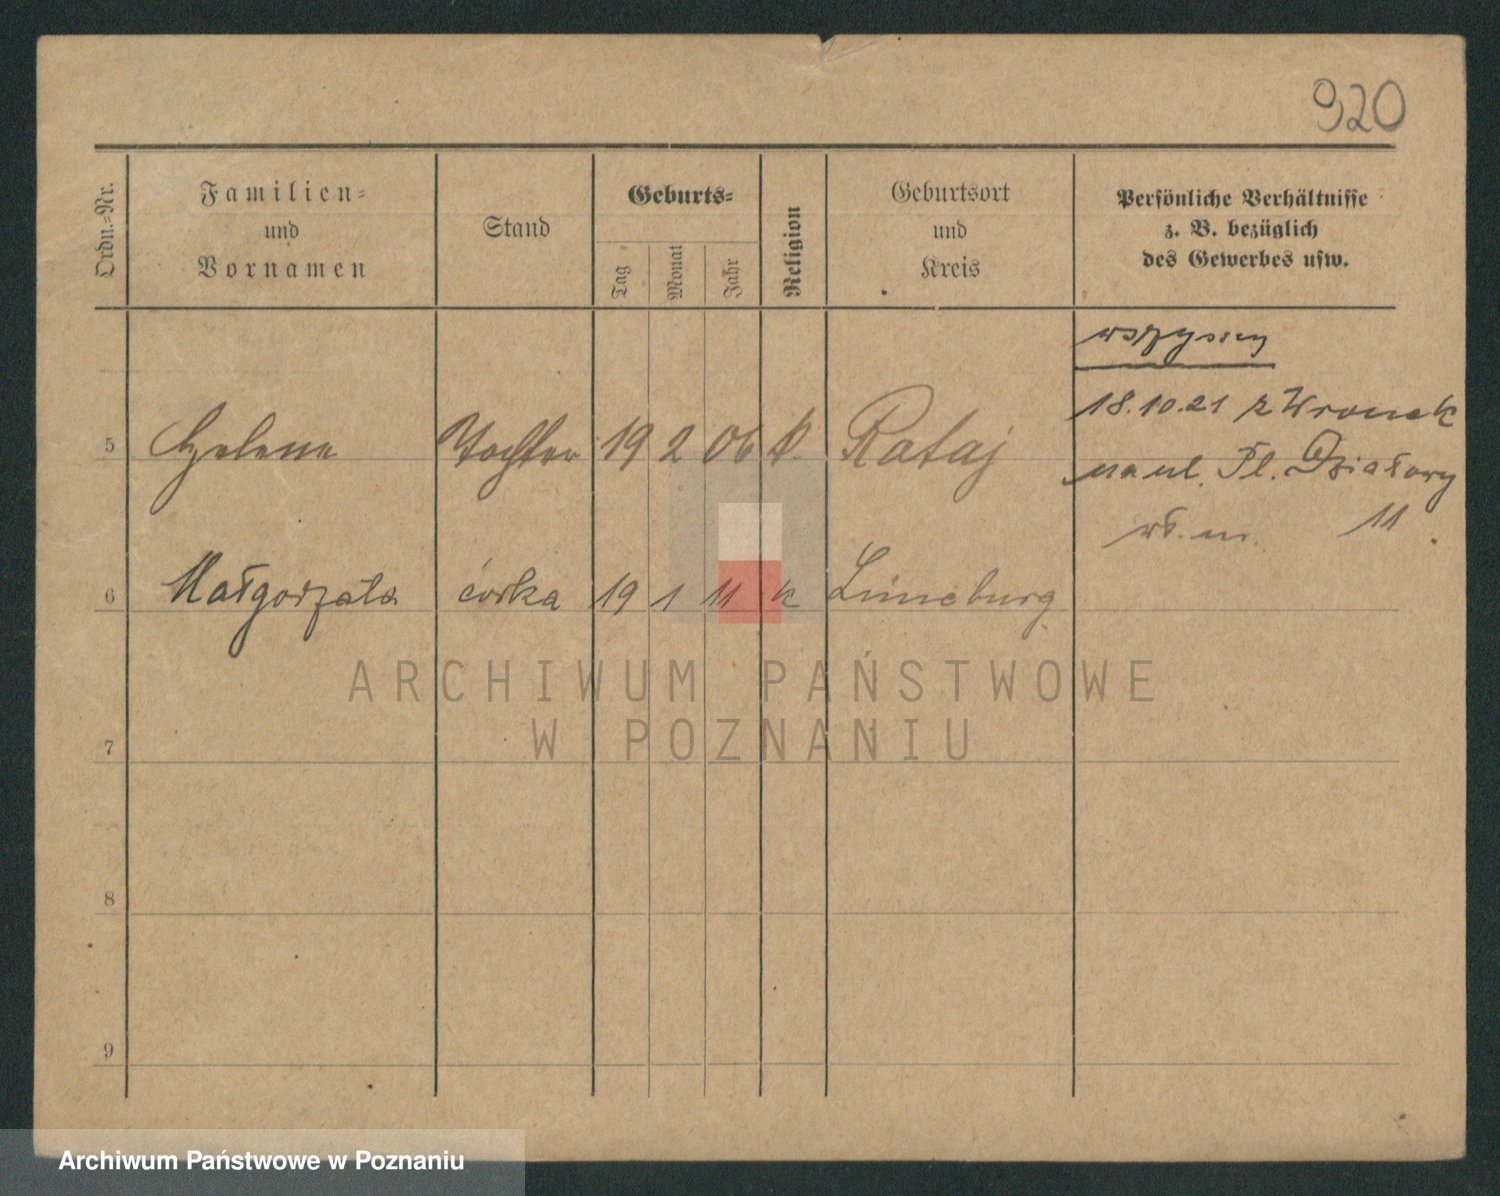 920
Ordn.-Nr.
Familien-
und
Vornamen
Stand
Geburts-
Tag
Monat
Jahr
Religion
Geburtsort
und
Kreis
Persönliche Verhältnisse
z. B. bezüglich
des Gewerbes usw.
wszyscy
18.10.21 z Wronek
na ul. Pl. Działowy
11
5 Helene Tochter 19 2 06 k. Rataj
6 Małgorzata córka 19 1 11 k Lüneburg
7
8
9
ARCHIWUM PAŃSTWOWE
W POZNANIU
Archiwum Państwowe w Poznaniu